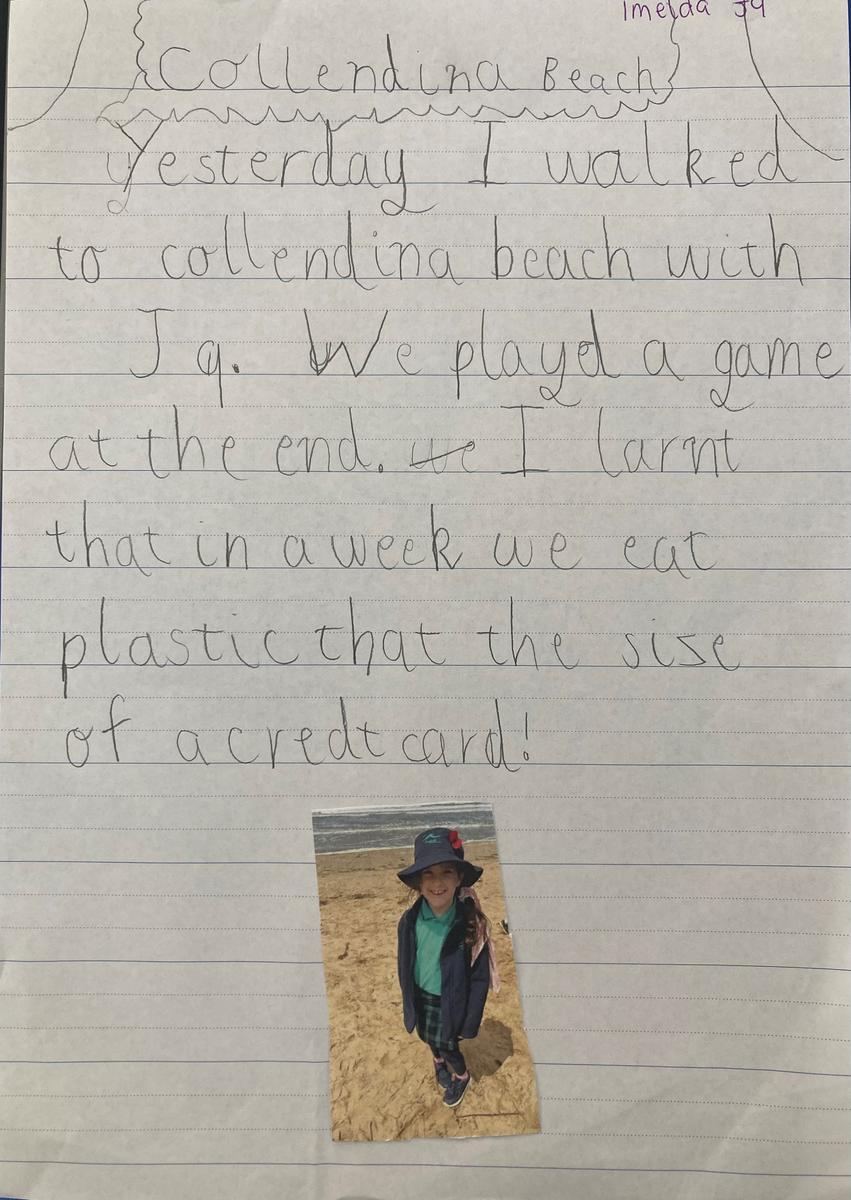 Imelda J9
Collendina Beach
Yesterday I walked
to collendina beach with
J9. We playd a game
at the end. we I larnt
that in a week we eat
plastic that the sise
of a credt card!